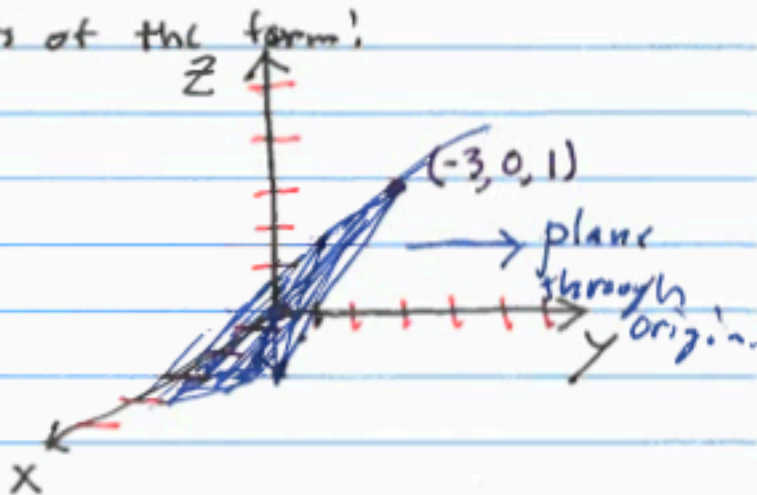 s of the form:
Z
(-3, 0, 1)
plane
through
origin.
y
X